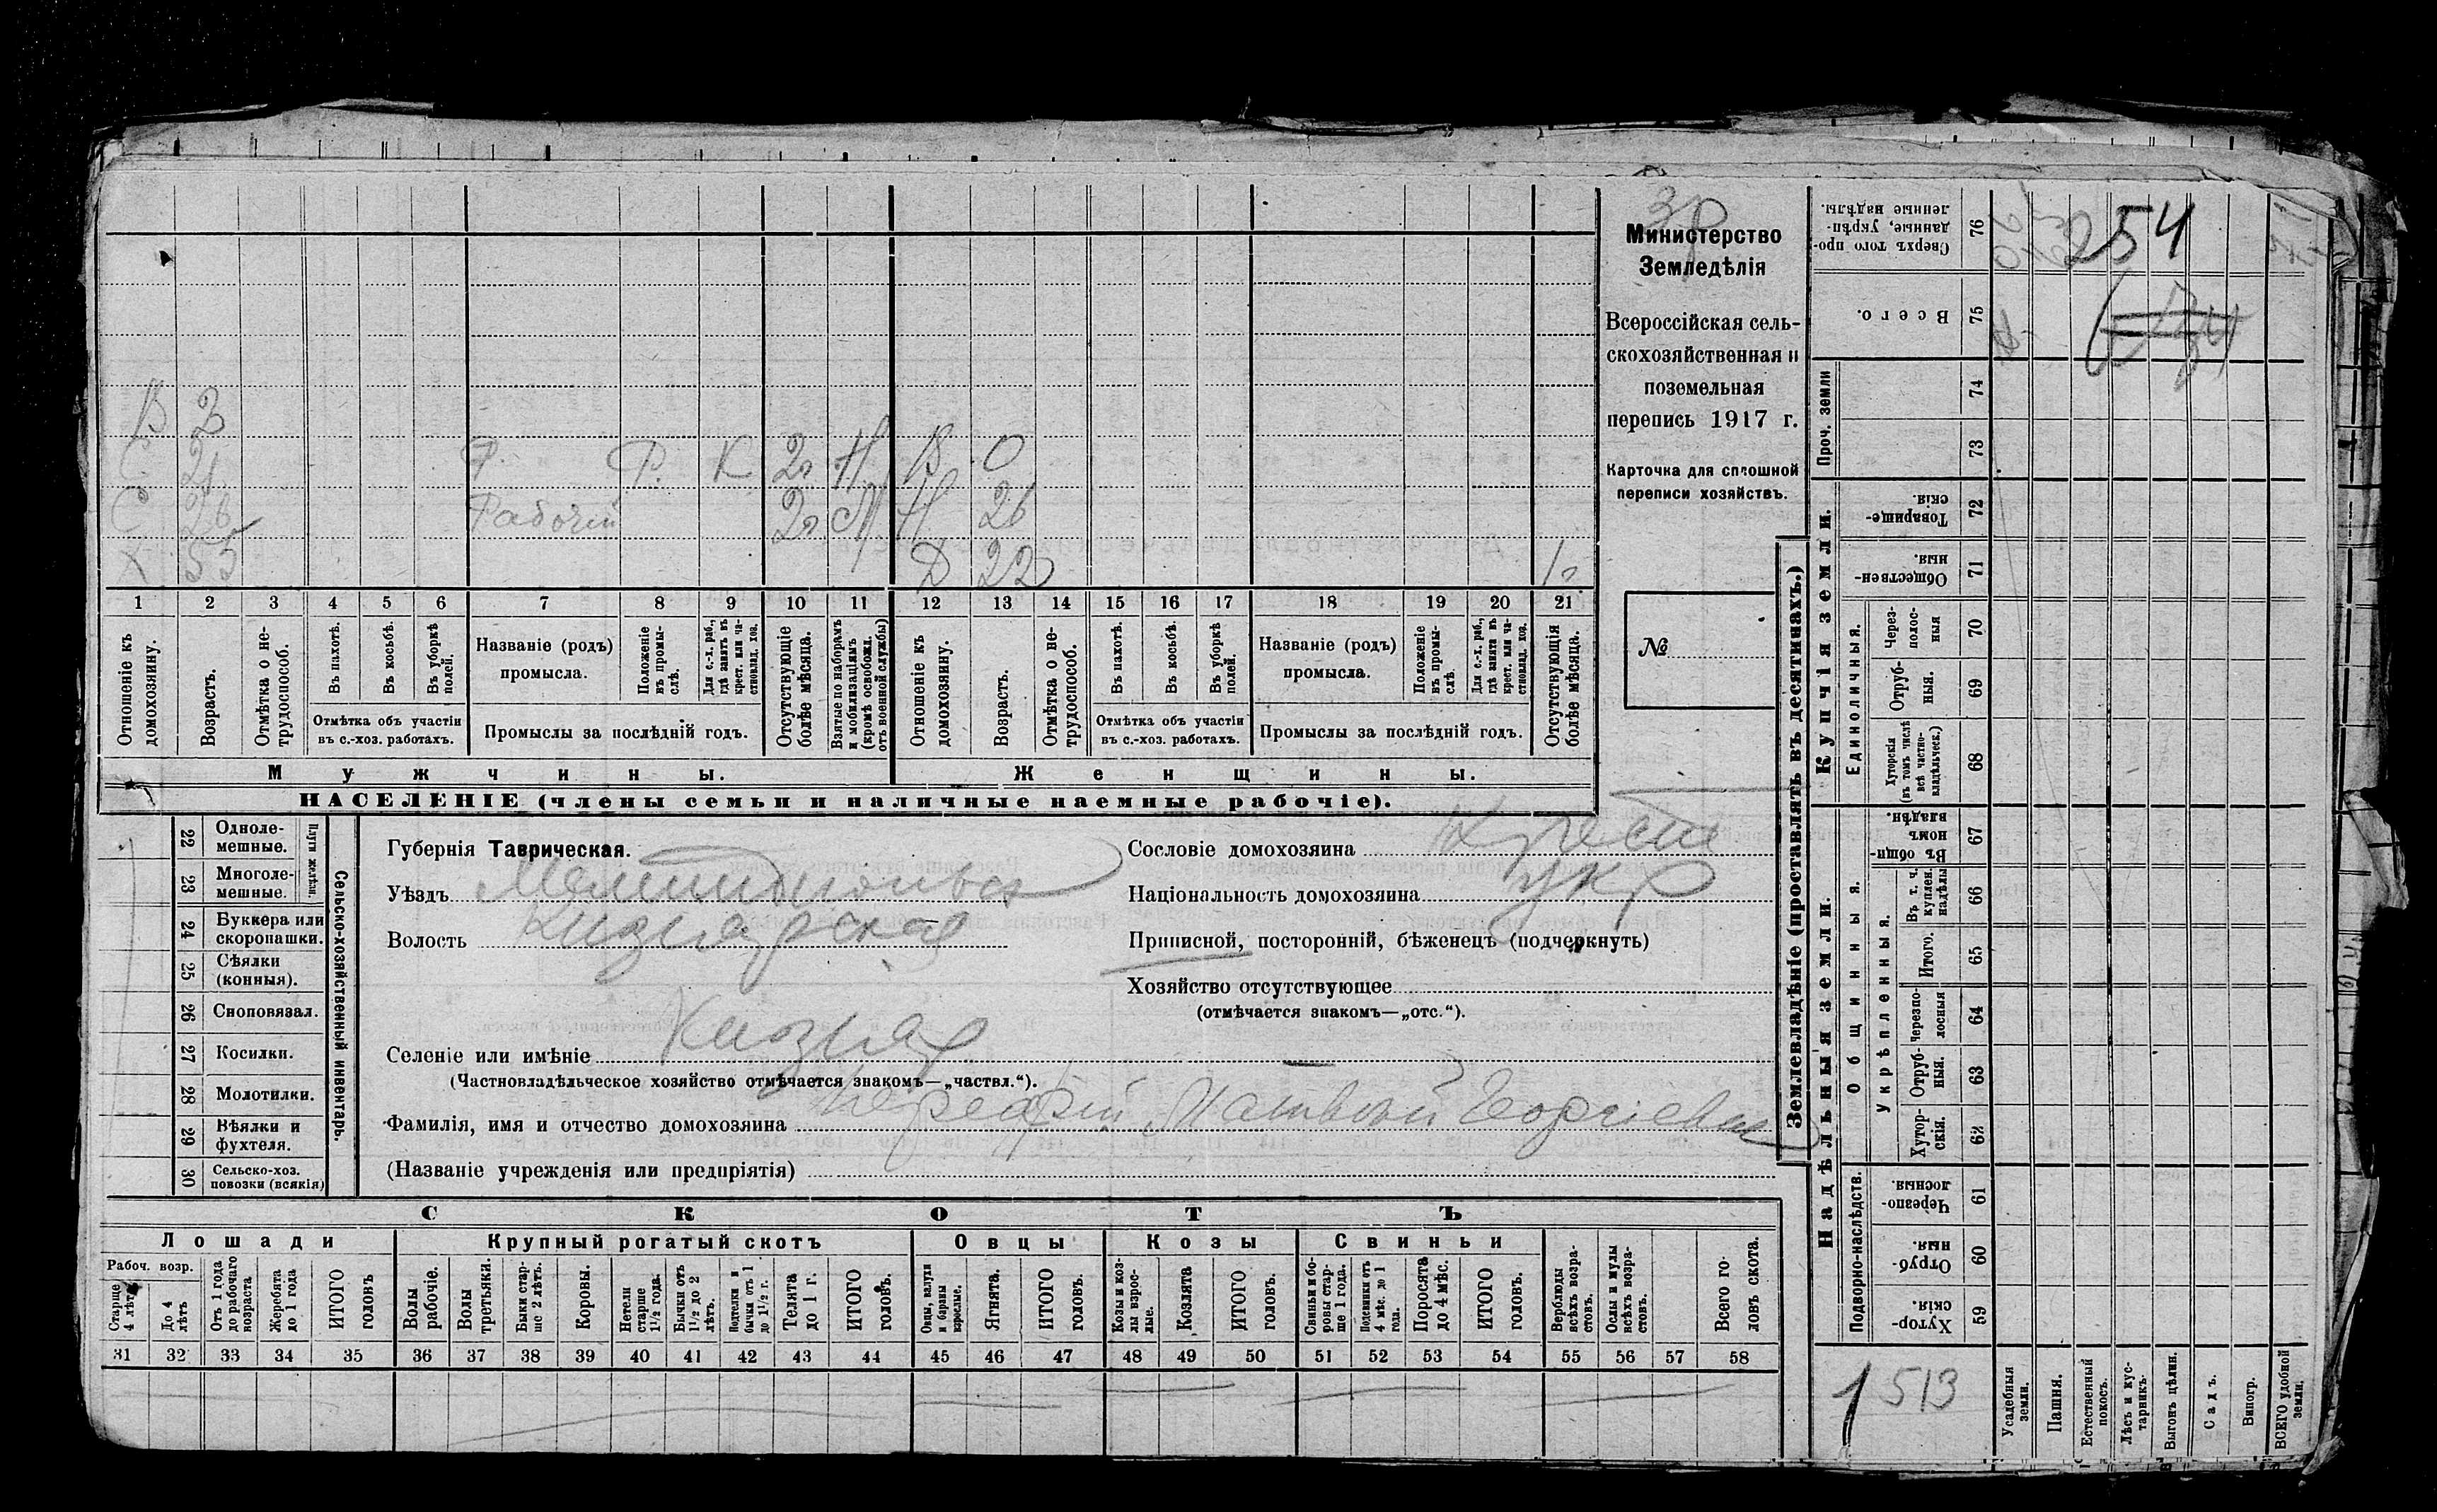 В 2
С 21 Р. Р. К 2 л Н В 0
С 26 Рабочий 2 л М Н 26
Х 55 Д 22 1 л
1 2 3 4 5 6 7 8 9 10 11 12 13 14 15 16 17 18 19 20 21
Отношеніе къ домохозяину.
Возрастъ.
Отмѣтка о не-трудоспособ.
Въ пахотѣ.
Въ косьбѣ.
Въ уборкѣ полей.
Отмѣтка объ участіи
въ с.-хоз. работахъ.
Названіе (родъ)
промысла.
Положеніе въ промы-слѣ.
Для с.-х. раб., гдѣ занятъ въ крест. или ча-стновлад. хоз.
Промыслы за послѣдній годъ.
Отсутствующіе болѣе мѣсяца.
Взятые по наборамъ и мобилизаціямъ (кромѣ освобожд. отъ военной службы)
Отношеніе къ домохозяину.
Возрастъ.
Отмѣтка о не-трудоспособ.
Въ пахотѣ.
Въ косьбѣ.
Въ уборкѣ полей.
Отмѣтка объ участіи
въ с.-хоз. работахъ.
Названіе (родъ)
промысла.
Положеніе въ промы-слѣ.
Для с.-х. раб., гдѣ занята въ крест. или ча-стновлад. хоз.
Промыслы за послѣдній годъ.
Отсутствующія болѣе мѣсяца.
Мужчины. Женщины.
НАСЕЛЕНІЕ (члены семьи и наличные наемные рабочіе).
Министерство
Земледѣлія
Всероссійская сель-
скохозяйственная и
поземельная
перепись 1917 г.
Карточка для сплошной
переписи хозяйствъ.
№
22 Одноле-мешные.
23 Многоле-мешные.
Плуги желѣзн.
24 Буккера или скоропашки.
25 Сѣялки (конныя).
26 Сноповязал.
27 Косилки.
28 Молотилки.
29 Вѣялки и фухтеля.
30 Сельско-хоз. повозки (всякія)
Сельско-хозяйственный инвентарь.
Губернія Таврическая.
Уѣздъ Мелитопольск
Волость Кизиярская
Селеніе или имѣніе Кизияр
(Частновладѣльческое хозяйство отмѣчается знакомъ—„частвл.“).
Фамилія, имя и отчество домохозяина Матвей Георгіевич
(Названіе учрежденія или предпріятія)
Сословіе домохозяина Крест
Національность домохозяина Укр
Приписной, посторонній, бѣженецъ (подчеркнуть)
Хозяйство отсутствующее
(отмѣчается знакомъ—„отс.“).
СКОТЪ
Лошади Крупный рогатый скотъ Овцы Козы Свиньи
Рабоч. возр.
Старше 4 лѣтъ
До 4 лѣтъ
Отъ 1 года до рабочаго возраста
Жеребята до 1 года
ИТОГО головъ
Волы рабочіе.
Волы третьяки.
Быки стар-ше 2 лѣтъ.
Коровы.
Нетели старше 1½ года.
Бычки отъ 1½ до 2 лѣтъ.
Подтелки и бычки отъ 1 до 1½ г.
Телята до 1 г.
ИТОГО головъ.
Овцы, валухи и бараны взрослые.
Ягнята.
ИТОГО головъ.
Козы и коз-лы взрос-лые.
Козлята
ИТОГО головъ.
Свиньи и бо-ровы стар-ше 1 года.
Подсвинки отъ 4 мѣс. до 1 года.
Поросята до 4 мѣс.
ИТОГО головъ.
Верблюды всѣхъ возра-стовъ.
Ослы и мулы всѣхъ возра-стовъ.
Всего го-ловъ скота.
31 32 33 34 35 36 37 38 39 40 41 42 43 44 45 46 47 48 49 50 51 52 53 54 55 56 57 58
Землевладѣніе (проставлять въ десятинахъ.)
Сверхъ того про-данные, укрѣп-ленные надѣлы. 76
254
Всего. 75
Проч. земли 74
73
Купчія земли.
Товарище-скія. 72
Обществен-ныя. 71
Единоличныя.
Через-полос-ныя 70
Отруб-ныя. 69
Хуторскія (въ томъ числѣ всѣ частно-владѣльческ.) 68
Надѣльныя земли.
Общинныя.
Въ общин-номъ владѣн. 67
Укрѣпленныя.
Въ т. ч. куплен. надѣлы 66
Итого. 65
Черезпо-лосныя 64
Отруб-ныя. 63
Хутор-скія. 62
Подворно-наслѣдств.
Черезпо-лосныя. 61
Отруб-ныя. 60
Хутор-скія. 59
1 513
Усадебныя земли.
Пашня.
Естественный покосъ.
Лѣсъ и кус-тарникъ.
Выгонъ цѣлин.
Садъ.
Виногр.
ВСЕГО удобной земли.